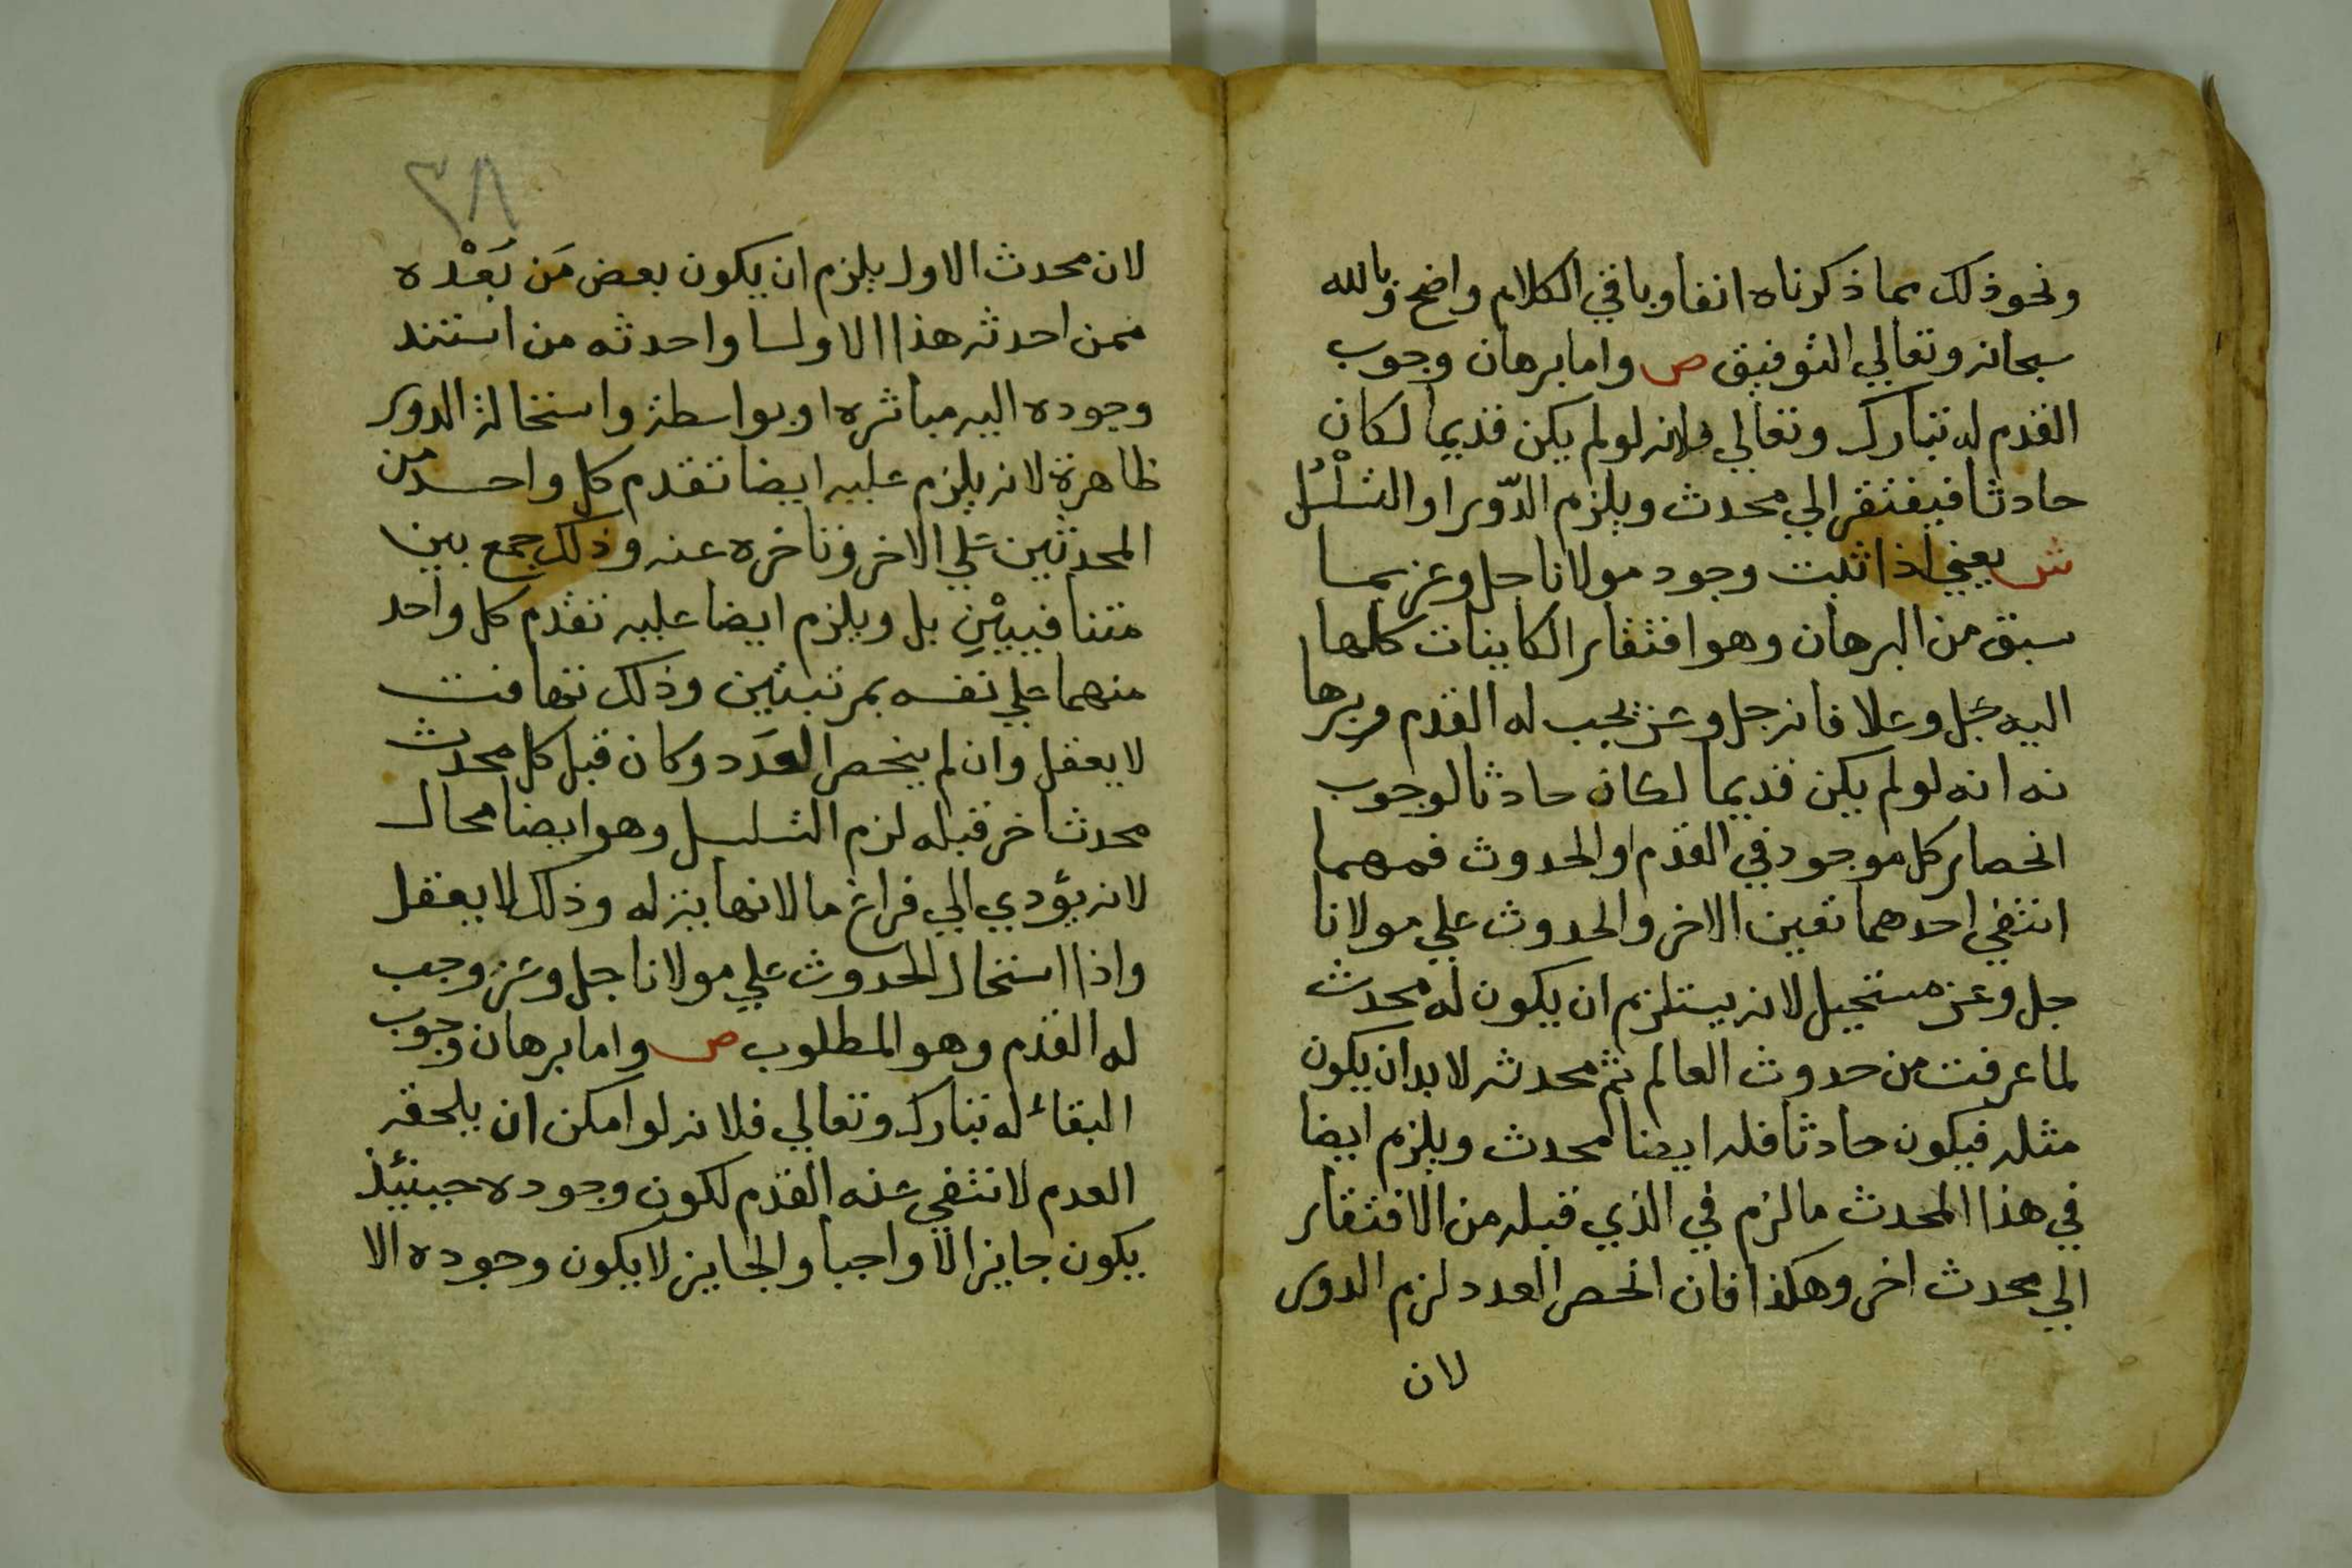 ونحو ذلك مما ذكرناه انفا وباقي الكلام واضح وبالله
سبحانه وتعالي التوفيق ص واما برهان وجوب
القدم له تبارك وتعالي فلانه لو لم يكن قديما لكان
حادثا فيفتقر الي محدث ويلزم الدّور او التسلْسُل
ش يعني اذا ثبت وجود مولانا جل وعز بما
سبق من البرهان وهو افتقار الكاينات كلها
اليه جل وعلا فانه جل وعز يجب له القدم وبرها
نه انه لو لم يكن قديما لكان حادثا لوجوب
انحصار كل موجود في القدم او الحدوث فمهما
انتفي احدهما تعين الاخر والحدوث علي مولانا
جل وعز مستحيل لانه يستلزم ان يكون له محدث
لما عرفت من حدوث العالم ثم محدثه لا بد ان يكون
مثله فيكون حادثا فله ايضا محدث ويلزم ايضا
في هذا المحدث ما لزم في الذي قبله من الافتقار
الي محدث اخر وهكذا فان انحصر العدد لزم الدور
لان
٢٨
لان محدث الاول يلزم ان يكون بعض مَن بَعْده
ممن احدثه هذا الاول او احدثه من استند
وجوده اليه مباشره او بواسطة واستحالة الدور
ظاهرة لانه يلزم عليه ايضا تقدم كل واحد من
المحدثين علي الاخر وتاخره عنه وذلك جمع بين
متنافييْنِ بل ويلزم ايضا عليه تقدم كل واحد
منهما علي نفسه بمرتبتين وذلك تهافت
لا يعقل وان لم ينحصر العَدَد وكان قبل كل محدث
محدث اخر قبله لزم التسلسل وهو ايضا محال
لانه يؤدي الي فراغ ما لا نهاية له وذلك لا يعقل
واذا استحال الحدوث علي مولانا جل وعز وجب
له القدم وهو المطلوب ص واما برهان وجوب
البقاء له تبارك وتعالي فلانه لو امكن ان يلحقه
العدم لانتفي عنه القدم لكون وجوده حينئيذ
يكون جايزا لا واجبا والجايز لا يكون وجوده الا